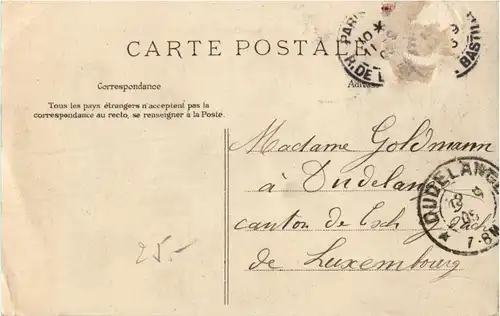 CARTE POSTALE
PARIS
R. DE L
BAST
Correspondance
Tous les pays étrangers n'acceptent pas la
correspondance au recto, se renseigner à la Poste.
Madame Goldmann
à Dudelange
canton de Esch
de Luxembourg
DUDELANGE
7-8
25.-